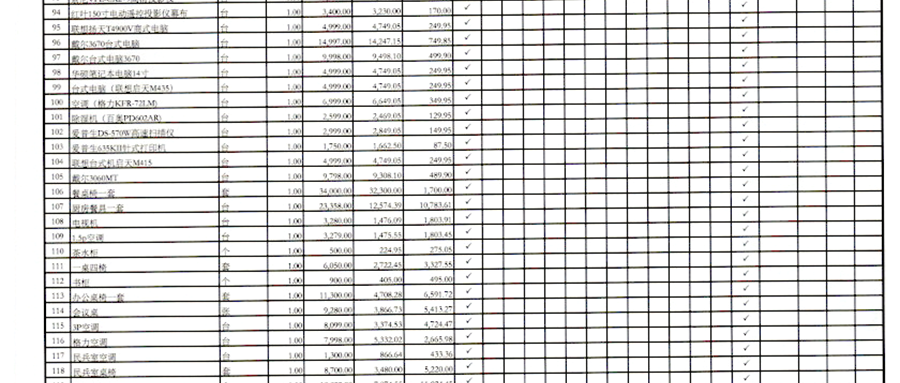 94 红叶150寸电动遥控投影仪幕布 台 1.00 3,400.00 3,230.00 170.00 ✓ ✓
95 联想扬天T4900V商式电脑 台 1.00 4,999.00 4,749.05 249.95 ✓ ✓
96 戴尔3670台式电脑 台 1.00 14,997.00 14,247.15 749.85 ✓ ✓
97 戴尔台式电脑3670 台 1.00 9,998.00 9,498.10 499.90 ✓ ✓
98 华硕笔记本电脑14寸 台 1.00 4,999.00 4,749.05 249.95 ✓ ✓
99 台式电脑（联想启天M435） 台 1.00 4,999.00 4,749.05 249.95 ✓ ✓
100 空调（格力KFR-72LM) 台 1.00 6,999.00 6,649.05 349.95 ✓ ✓
101 除湿机（百奥PD602AR) 台 1.00 2,599.00 2,469.05 129.95 ✓ ✓
102 爱普生DS-570W高速扫描仪 台 1.00 2,999.00 2,849.05 149.95 ✓ ✓
103 爱普生635KII针式打印机 台 1.00 1,750.00 1,662.50 87.50 ✓ ✓
104 联想台式机启天M415 台 1.00 4,999.00 4,749.05 249.95 ✓ ✓
105 戴尔3060MT 台 1.00 9,798.00 9,308.10 489.90 ✓ ✓
106 餐桌椅一套 套 1.00 34,000.00 32,300.00 1,700.00 ✓ ✓
107 厨房餐具一套 台 1.00 23,358.00 12,574.39 10,783.61 ✓ ✓
108 电视机 台 1.00 3,280.00 1,476.09 1,803.91 ✓ ✓
109 1.5p空调 台 1.00 3,279.00 1,475.55 1,803.45 ✓ ✓
110 茶水柜 个 1.00 500.00 224.95 275.05 ✓ ✓
111 一桌四椅 套 1.00 6,050.00 2,722.45 3,327.55 ✓ ✓
112 书柜 个 1.00 900.00 405.00 495.00 ✓ ✓
113 办公桌椅一套 套 1.00 11,300.00 4,708.28 6,591.72 ✓ ✓
114 会议桌 张 1.00 9,280.00 3,866.73 5,413.27 ✓ ✓
115 3P空调 台 1.00 8,099.00 3,374.53 4,724.47 ✓ ✓
116 格力空调 台 1.00 7,998.00 5,332.02 2,665.98 ✓ ✓
117 民兵室空调 台 1.00 1,300.00 866.64 433.36 ✓ ✓
118 民兵室桌椅 套 1.00 8,700.00 3,480.00 5,220.00 ✓ ✓